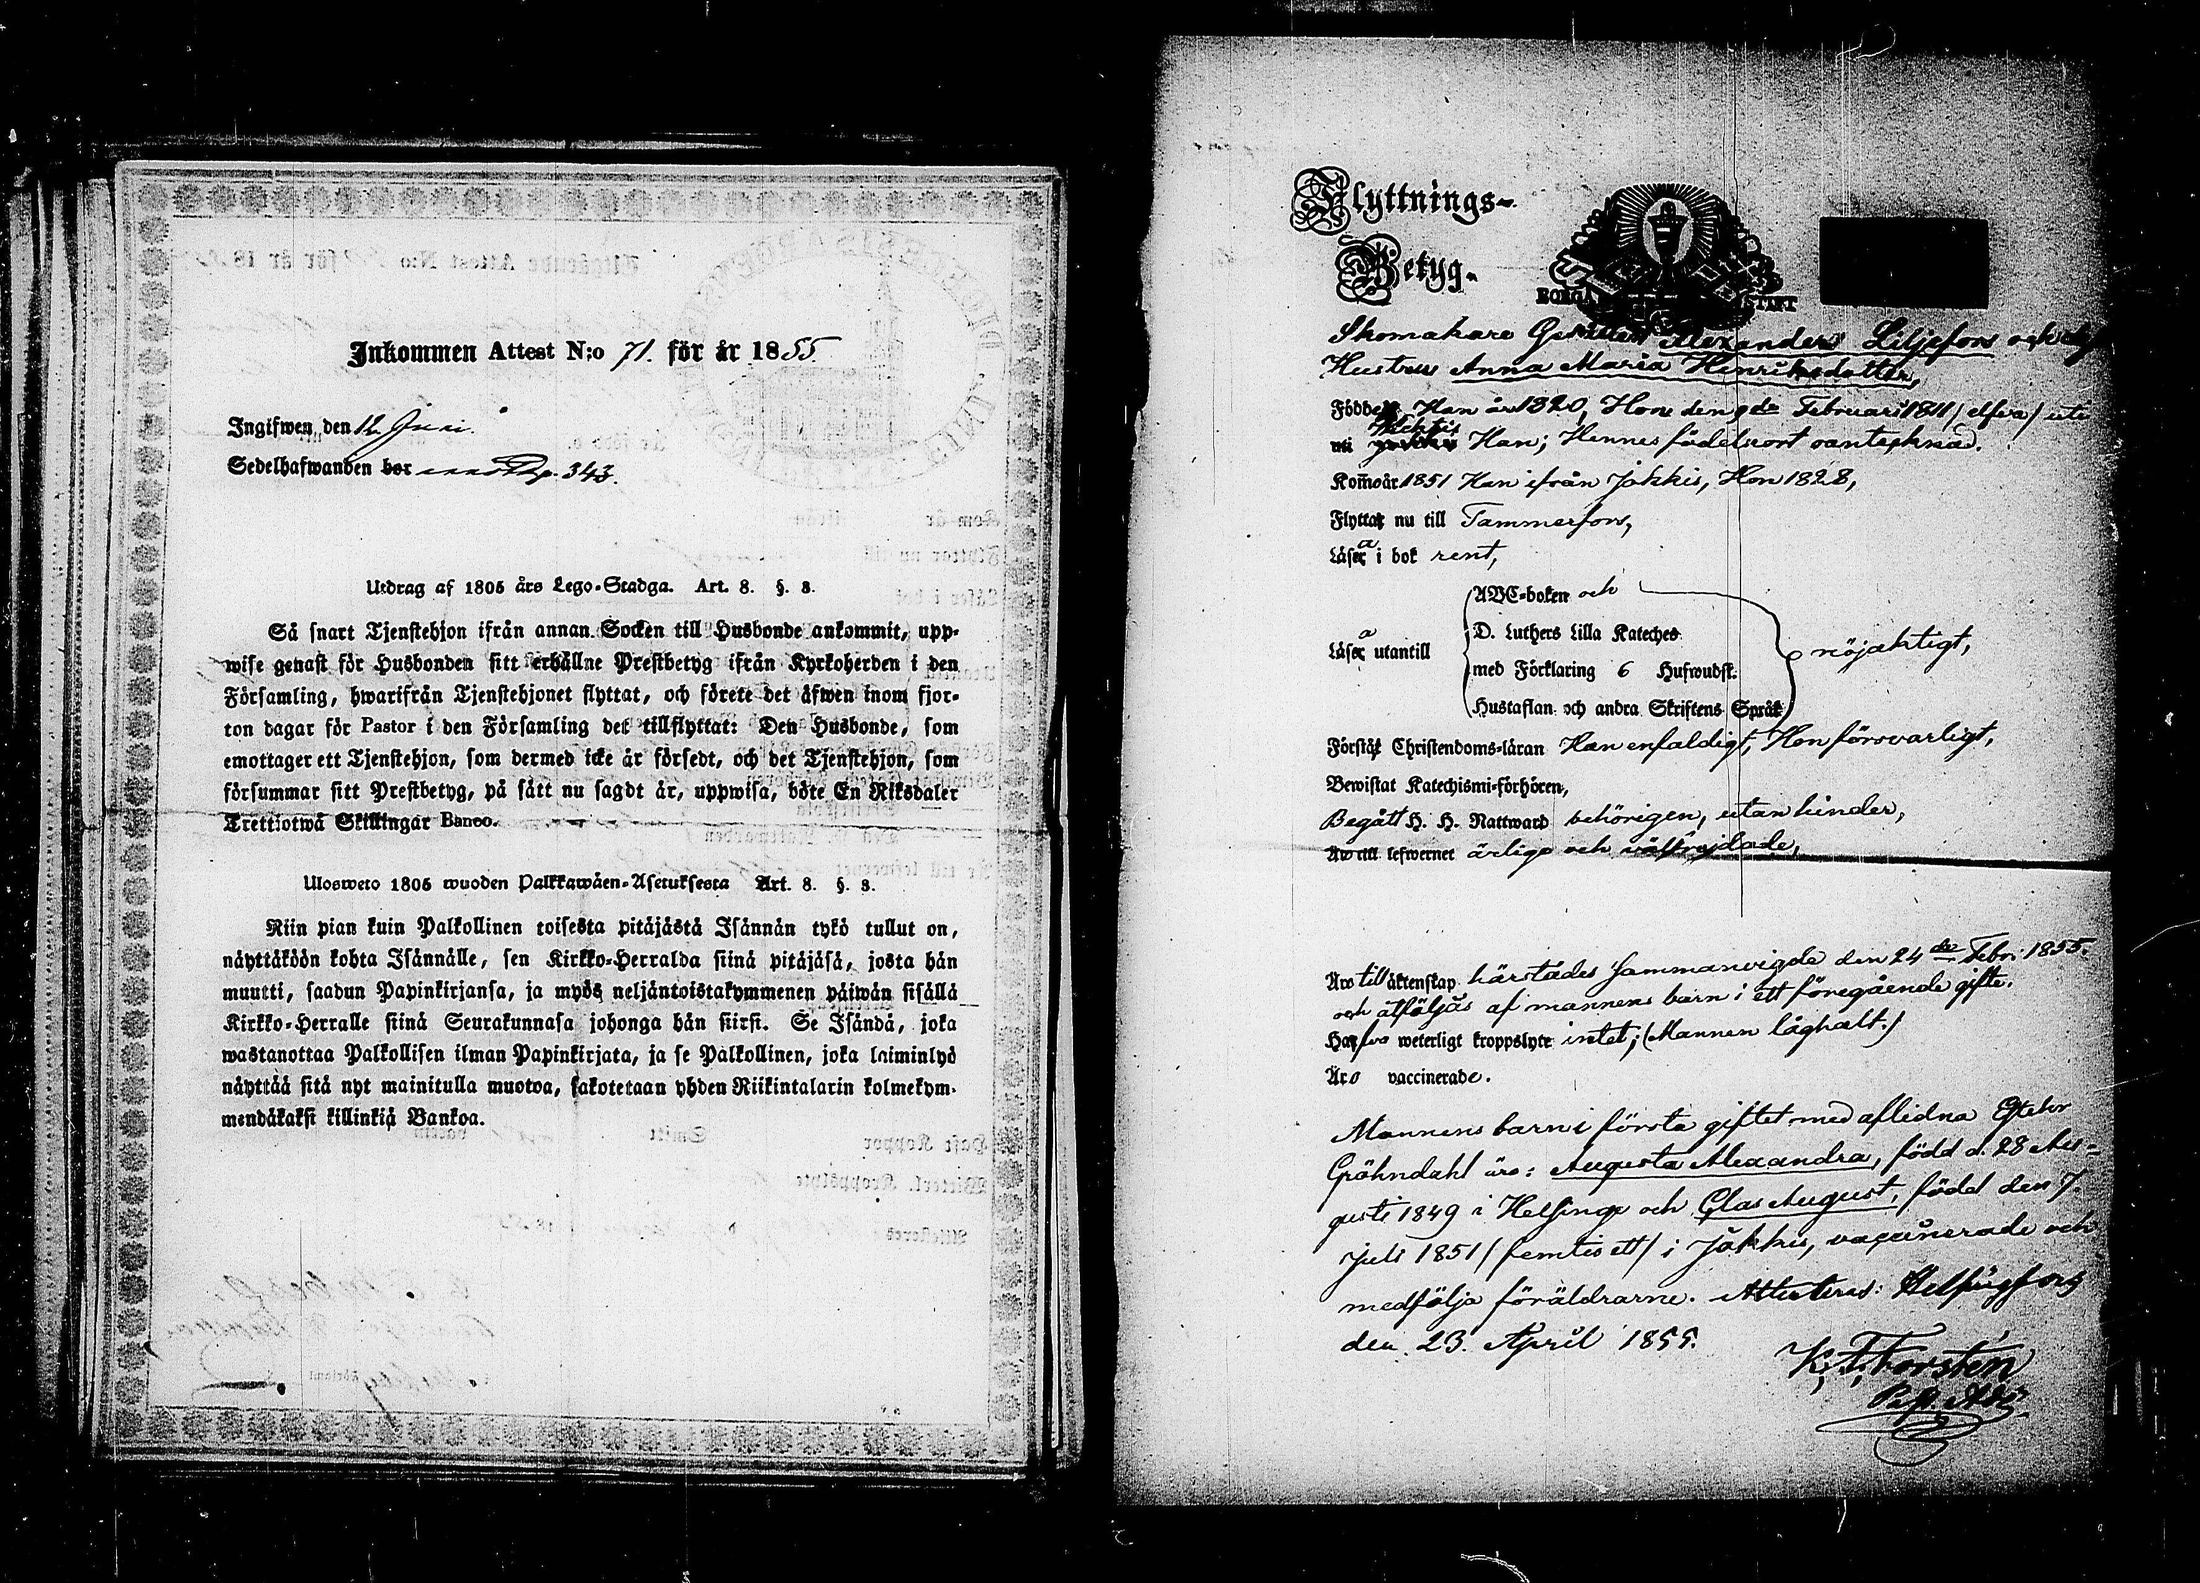 Inkommen Attest N:o 71. för år 1855
Ingifwen den 12 Juni.
Sedelhafwanden bor p. 343.
Utdrag af 1805 års Lego-Stadga. Art. 8. §. 3.
Så snart Tjenstehjon ifrån annan Socken till Husbonde ankommit, upp-
wise genast för Husbonden sitt erhållne Prestbetyg ifrån Kyrkoherden i den
Församling, hwarifrån Tjenstehjonet flyttat, och förete det äfwen inom fjor-
ton dagar för Pastor i den Församling det tillflyttat: Den Husbonde, som
emottager ett Tjenstehjon, som dermed icke är försedt, och det Tjenstehjon, som
försummar sitt Prestbetyg, på sätt nu sagdt är, uppwisa, böte En Riksdaler
Trettiotwå Skillingar Banco.
Ulosweto 1805 wuoden Palkkawäen-Asetuksesta Art. 8. §. 3.
Niin pian kuin Palkollinen toisesta pitäjästä Isännän tykö tullut on,
näyttäköön kohta Isännälle, sen Kirkko-Herralda siinä pitäjäsä, josta hän
muutti, saadun Papinkirjansa, ja myös neljäntoistakymmenen päiwän sisällä
Kirkko-Herralle siinä Seurakunnasa johonga hän siirsi. Se Isändä, joka
wastanottaa Palkollisen ilman Papinkirjata, ja se Palkollinen, joka laiminlyö
näyttää sitä nyt mainitulla muotoa, sakotetaan yhden Riikintalarin kolmekym-
mendäkaksi killinkiä Bankoa.
Flyttnings-
Betyg.
BORGÅ STIFT
Skomakare Gesällen Alexander Liljefors och dess
Hustru Anna Maria Henriksdotter,
Födde Han år 1820, Hon den 9de Februari 1811 /elfva/ uti
Wichtis Han; Hennes födelseort oantecknad.
Kom̄o år 1851 Han ifrån Jokkis, Hon 1828,
Flytta nu till Tammerfors,
Läsa i bok rent,
Läsa utantill
ABC-boken och
D. Luthers Lilla Kateches
med Förklaring 6 Hufwudst.
Hustaflan och andra Skriftens Språk
nöjaktigt,
Förstå Christendoms-läran Han enfaldigt, Hon försvarligt,
Bewistat Katechismi-förhören,
Begått H. H. Nattward behörigen, utan hinder,
Äro till lefwernet ärliga och välfrejdade,
Äro till äktenskap härstädes sammanvigde den 24de Febr. 1855.
och åtföljas af mannens barn i ett föregående gifte.
Hafva weterligt kroppslyte intet; (Mannen låghalt.)
Äro vaccinerade.
Mannens barn i första giftet med aflidna Esther
Gröhndahl äro: Augusta Alexandra, född d. 28 Au-
gusti 1849 i Helsinge och Claes August, född den 7.
Juli 1851 /femtio ett/ i Jokkis, vaccinerade och
medfölja föräldrarne. Attesteras: Helsingfors
den 23. April 1855.
K. F. Forstén
Past. Adj.